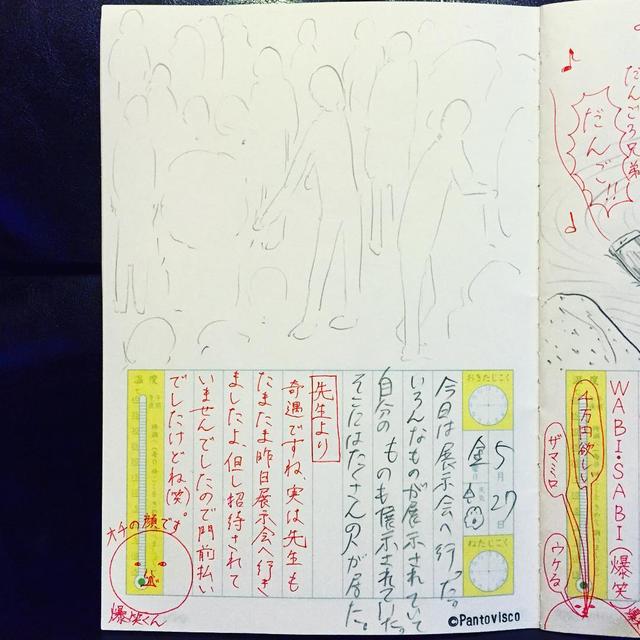 おきたじこく
ねたじこく
5月27日
金
今日は展示会へ行った。
いろんなものが展示されていて
自分のものも展示されていた。
そこにはたくさんの人が居た。
先生より
奇遇ですね、実は先生も
たまたま昨日展示会へ行き
ましたよ、但し招待されて
いませんでしたので門前払い
でしたけどね(笑)。
温度
オチの顔です
爆笑くん
©Pantovisco
だんご3兄弟
だんご!!
WABI・SABI(爆笑
千万円欲しい
ザマミロ
ウケる